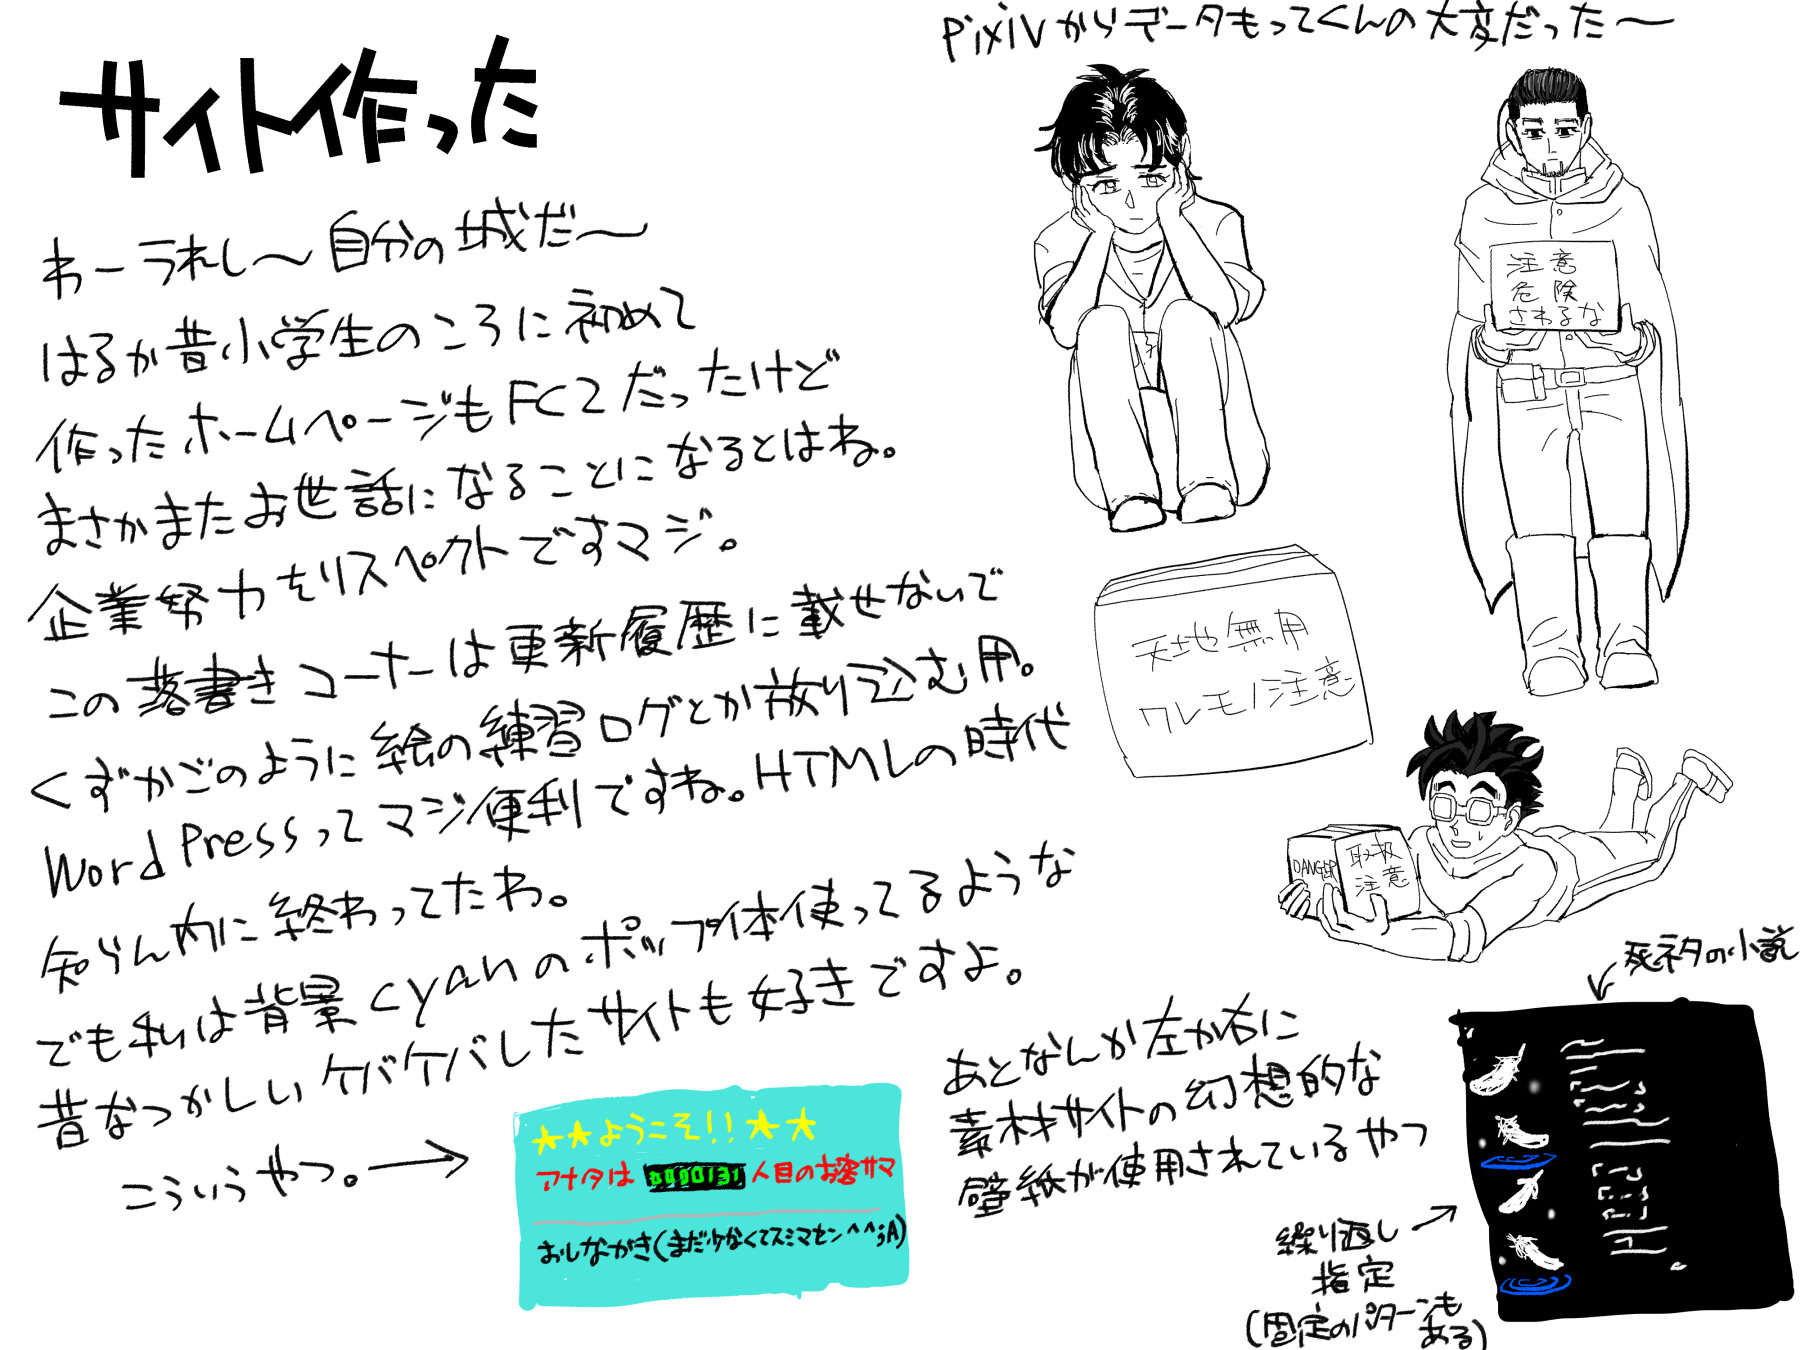 サイト作った
わーうれし〜自分の城だ〜
はるか昔小学生のころに初めて
作ったホームページもFC2だったけど
まさかまたお世話になることになるとはね。
企業努力をリスペクトですマジ。
この落書きコーナーは更新履歴に載せないで
くずかごのように絵の練習ログとか放り込む用。
WordPressってマジ便利ですね。HTMLの時代
知らん内に終わってたわ。
でも私は背景cyanのポップ体使ってるような
昔なつかしいケバケバしたサイトも好きですよ。
こういうやつ。→
★★ようこそ!!★★
アナタは 0000131 人目のお客サマ
おしながき(まだ少なくてスミマセン^^;A)
Pixivからデータもってくんの大変だった〜
注意
危険
さわるな
天地無用
ワレモノ注意
DANGER
取扱
注意
死ネタの小説
あとなんか左か右に
素材サイトの幻想的な
壁紙が使用されているやつ
繰り返し
指定
(固定のパターンも
ある)